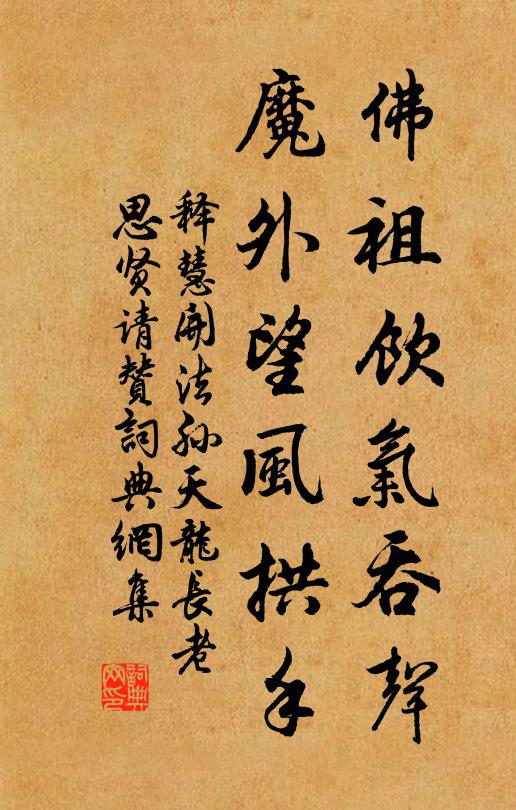 佛祖飲氣吞聲
魔外望風拱手
释慧開法孫天龍長老
思贤请赞詞典網集
詞典
网印